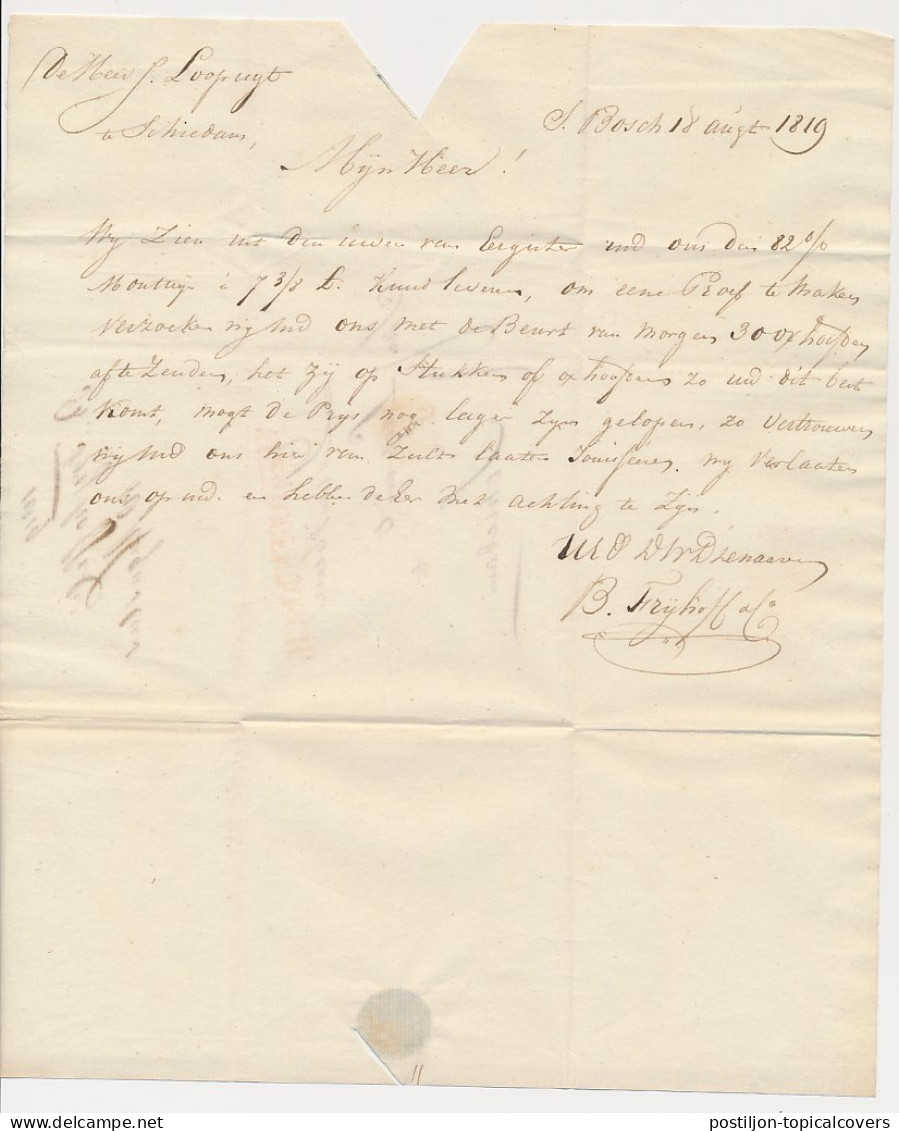 De Heer J. Loopuyt
te Schiedam,
S. Bosch 18 augt 1819
Mijn Heer!
Wy Zien uit den uwen van Eergister UEd ons den 82 %
Moutwijn à 7 3/8 L. Kund leveren, om eene Proef te Maken
verzoeken wij UEd ons met de Beurt van Morgen 30 oxhoofden
afte Zenden, het Zij op Stukken of oxhoofden zo UEd dit best
komt, mogt de Prys nog lager Zyn gelopen, zo vertrouwen
wij UEd ons hier van Zult laaten Jouisseren, wy verlaaten
ons op UEd. en hebben de Eer met achting te Zijn.
UEd DWDienaaren
B. Fryhoff & Co
postiljon-topicalcovers